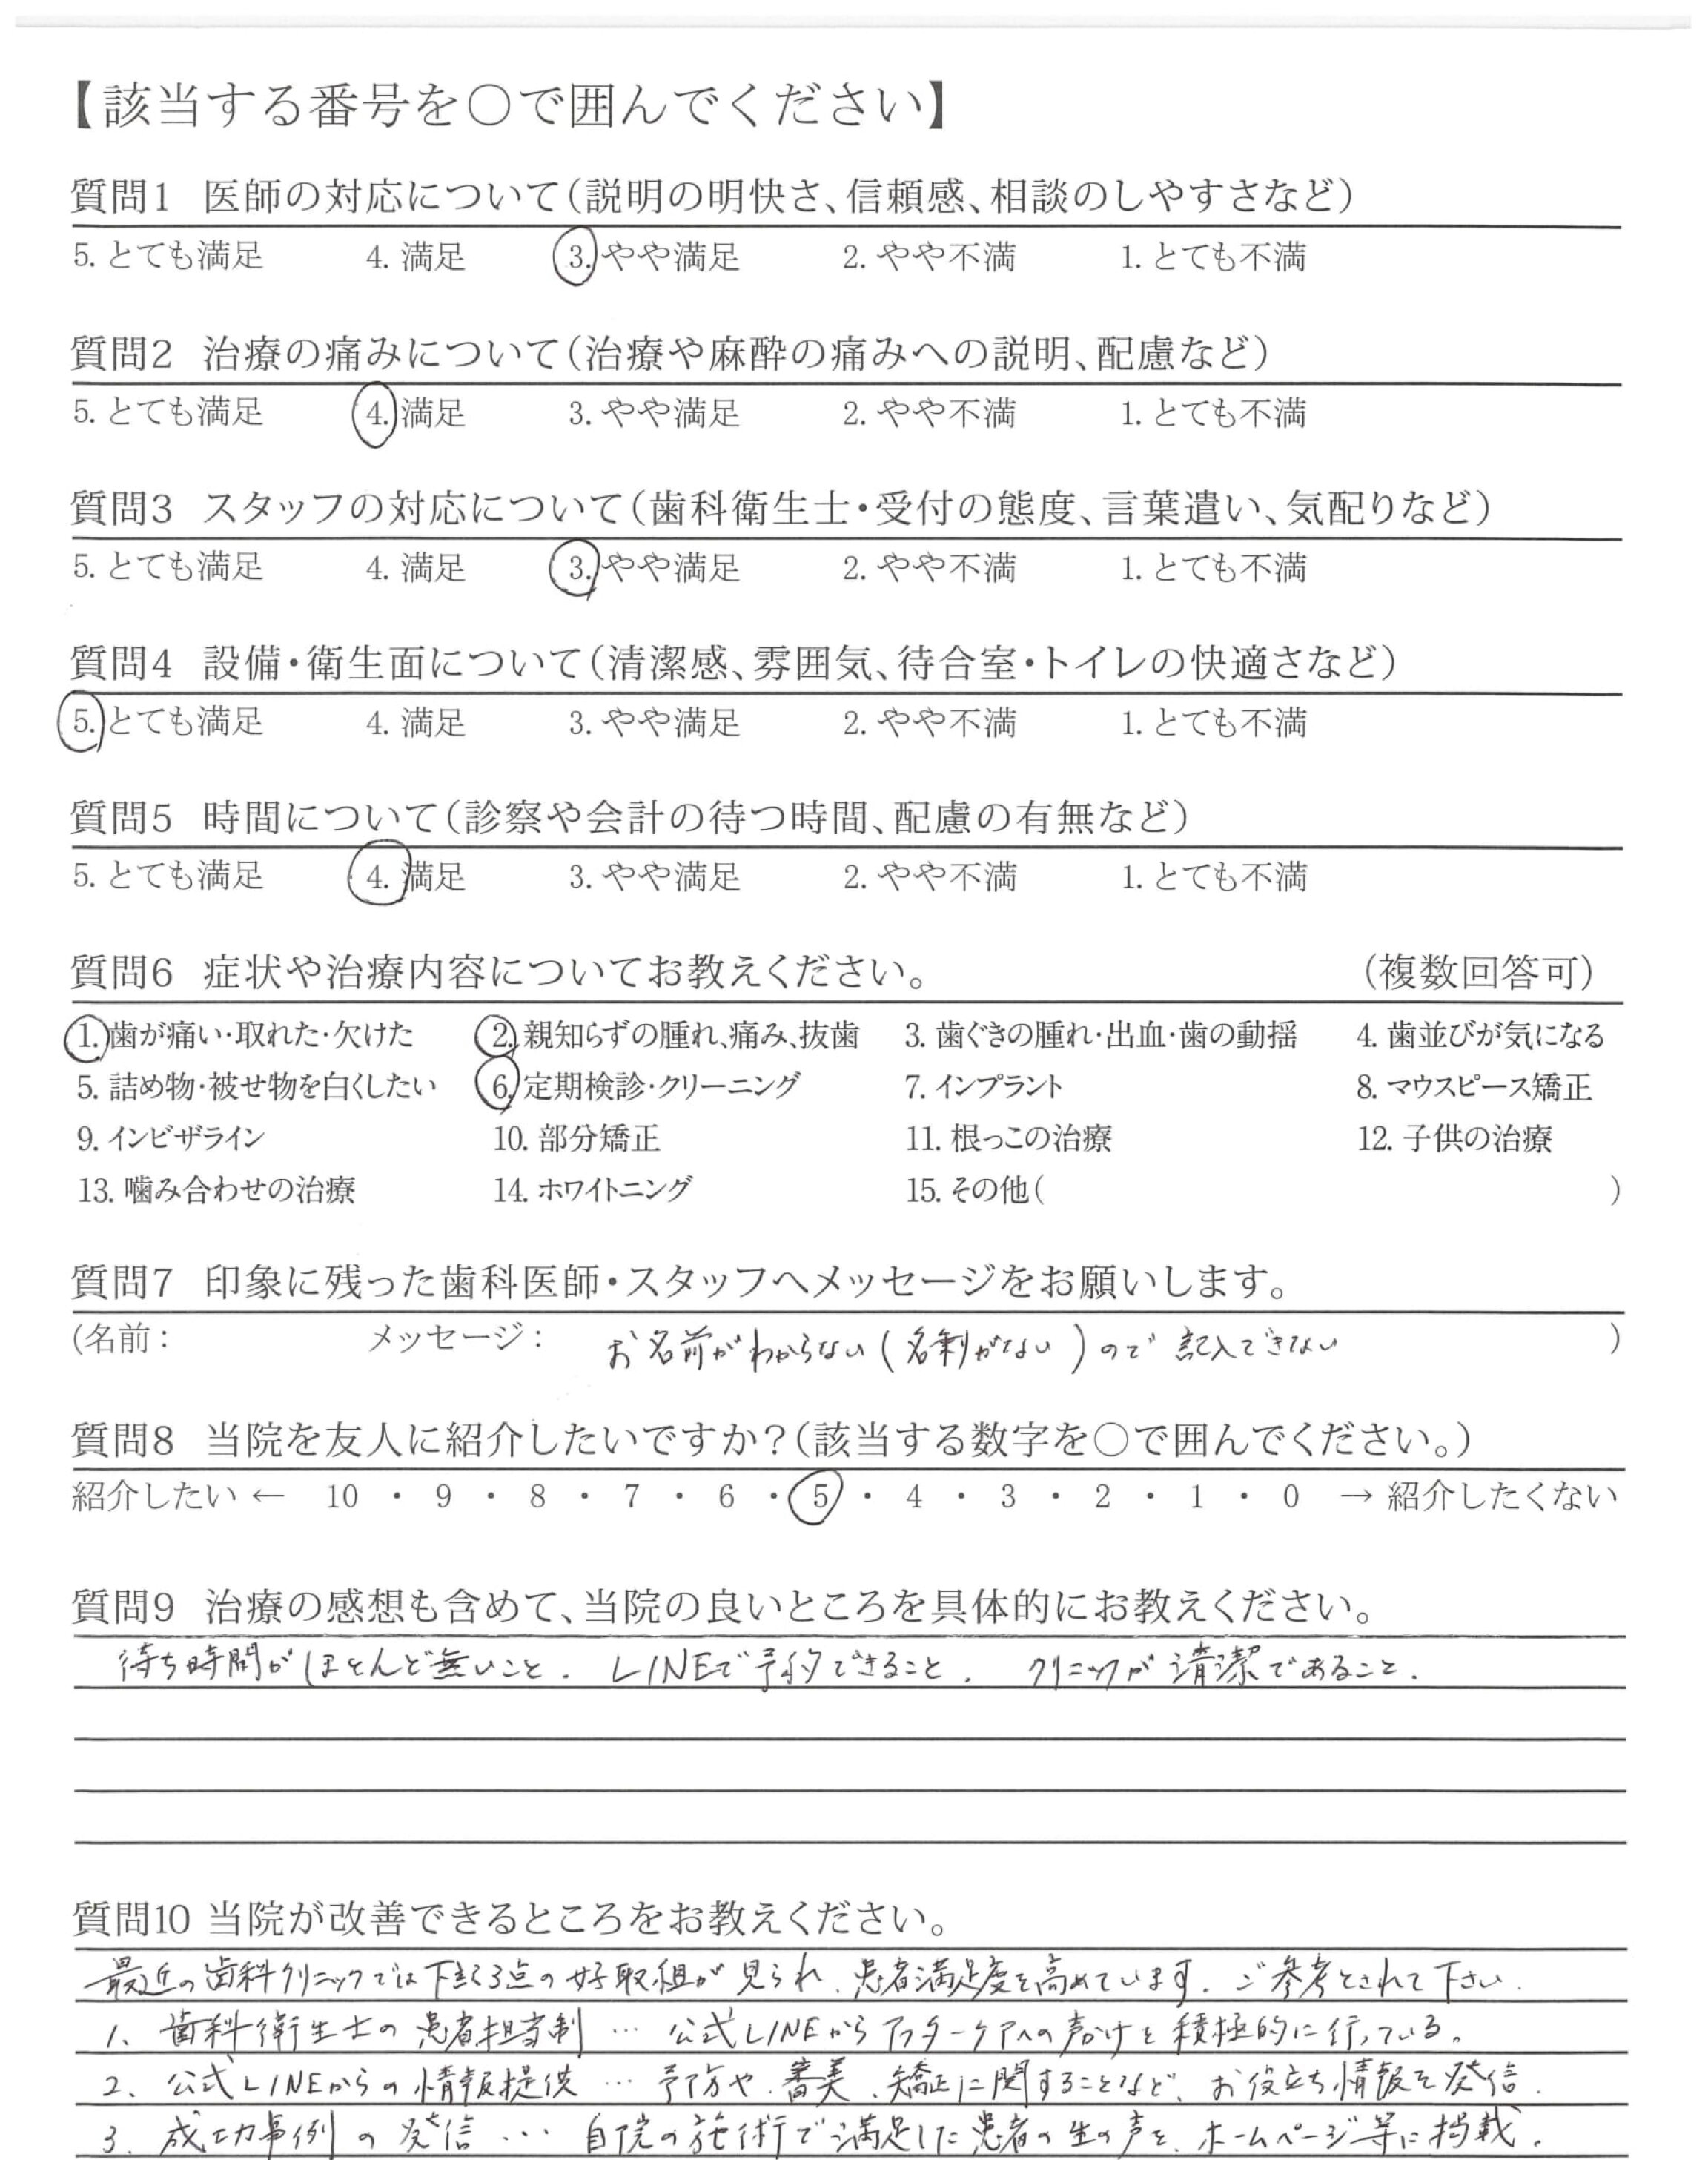 【該当する番号を○で囲んでください】
質問1 医師の対応について(説明の明快さ、信頼感、相談のしやすさなど)
5. とても満足 4. 満足 3. やや満足 2. やや不満 1. とても不満
質問2 治療の痛みについて(治療や麻酔の痛みへの説明、配慮など)
5. とても満足 4. 満足 3. やや満足 2. やや不満 1. とても不満
質問3 スタッフの対応について(歯科衛生士・受付の態度、言葉遣い、気配りなど)
5. とても満足 4. 満足 3. やや満足 2. やや不満 1. とても不満
質問4 設備・衛生面について(清潔感、雰囲気、待合室・トイレの快適さなど)
5. とても満足 4. 満足 3. やや満足 2. やや不満 1. とても不満
質問5 時間について(診察や会計の待つ時間、配慮の有無など)
5. とても満足 4. 満足 3. やや満足 2. やや不満 1. とても不満
質問6 症状や治療内容についてお教えください。 (複数回答可)
1. 歯が痛い・取れた・欠けた 2. 親知らずの腫れ、痛み、抜歯 3. 歯ぐきの腫れ・出血・歯の動揺 4. 歯並びが気になる
5. 詰め物・被せ物を白くしたい 6. 定期検診・クリーニング 7. インプラント 8. マウスピース矯正
9. インビザライン 10. 部分矯正 11. 根っこの治療 12. 子供の治療
13. 噛み合わせの治療 14. ホワイトニング 15. その他( )
質問7 印象に残った歯科医師・スタッフへメッセージをお願いします。
(名前: メッセージ: お名前がわからない(名刺がない)ので記入できない )
質問8 当院を友人に紹介したいですか?(該当する数字を○で囲んでください。)
紹介したい ← 10 ・ 9 ・ 8 ・ 7 ・ 6 ・ 5 ・ 4 ・ 3 ・ 2 ・ 1 ・ 0 → 紹介したくない
質問9 治療の感想も含めて、当院の良いところを具体的にお教えください。
待ち時間がほとんど無いこと. LINEで予約できること. クリニックが清潔であること.
質問10 当院が改善できるところをお教えください。
最近の歯科クリニックでは下記3点の好取組が見られ、患者満足度を高めています. ご参考とされて下さい.
1、歯科衛生士の患者担当制 … 公式LINEからアフターケアへの声かけを積極的に行っている。
2、公式LINEからの情報提供 … 予防や、審美、矯正に関することなど、お役立ち情報を発信.
3. 成功事例の発信 … 自院の施術で満足した患者の生の声を、ホームページ等に掲載.